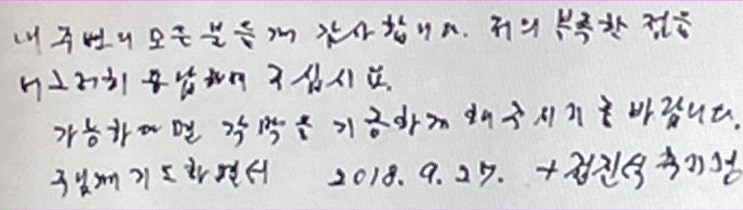 내 주변의 모든 분들께 감사합니다. 저의 부족한 점을
너그러히 용납하여 주십시오.
가능하다면 각막을 기증하게 해주시기를 바랍니다.
주님께 기도하면서 2018. 9. 27. + 정진석 추기경